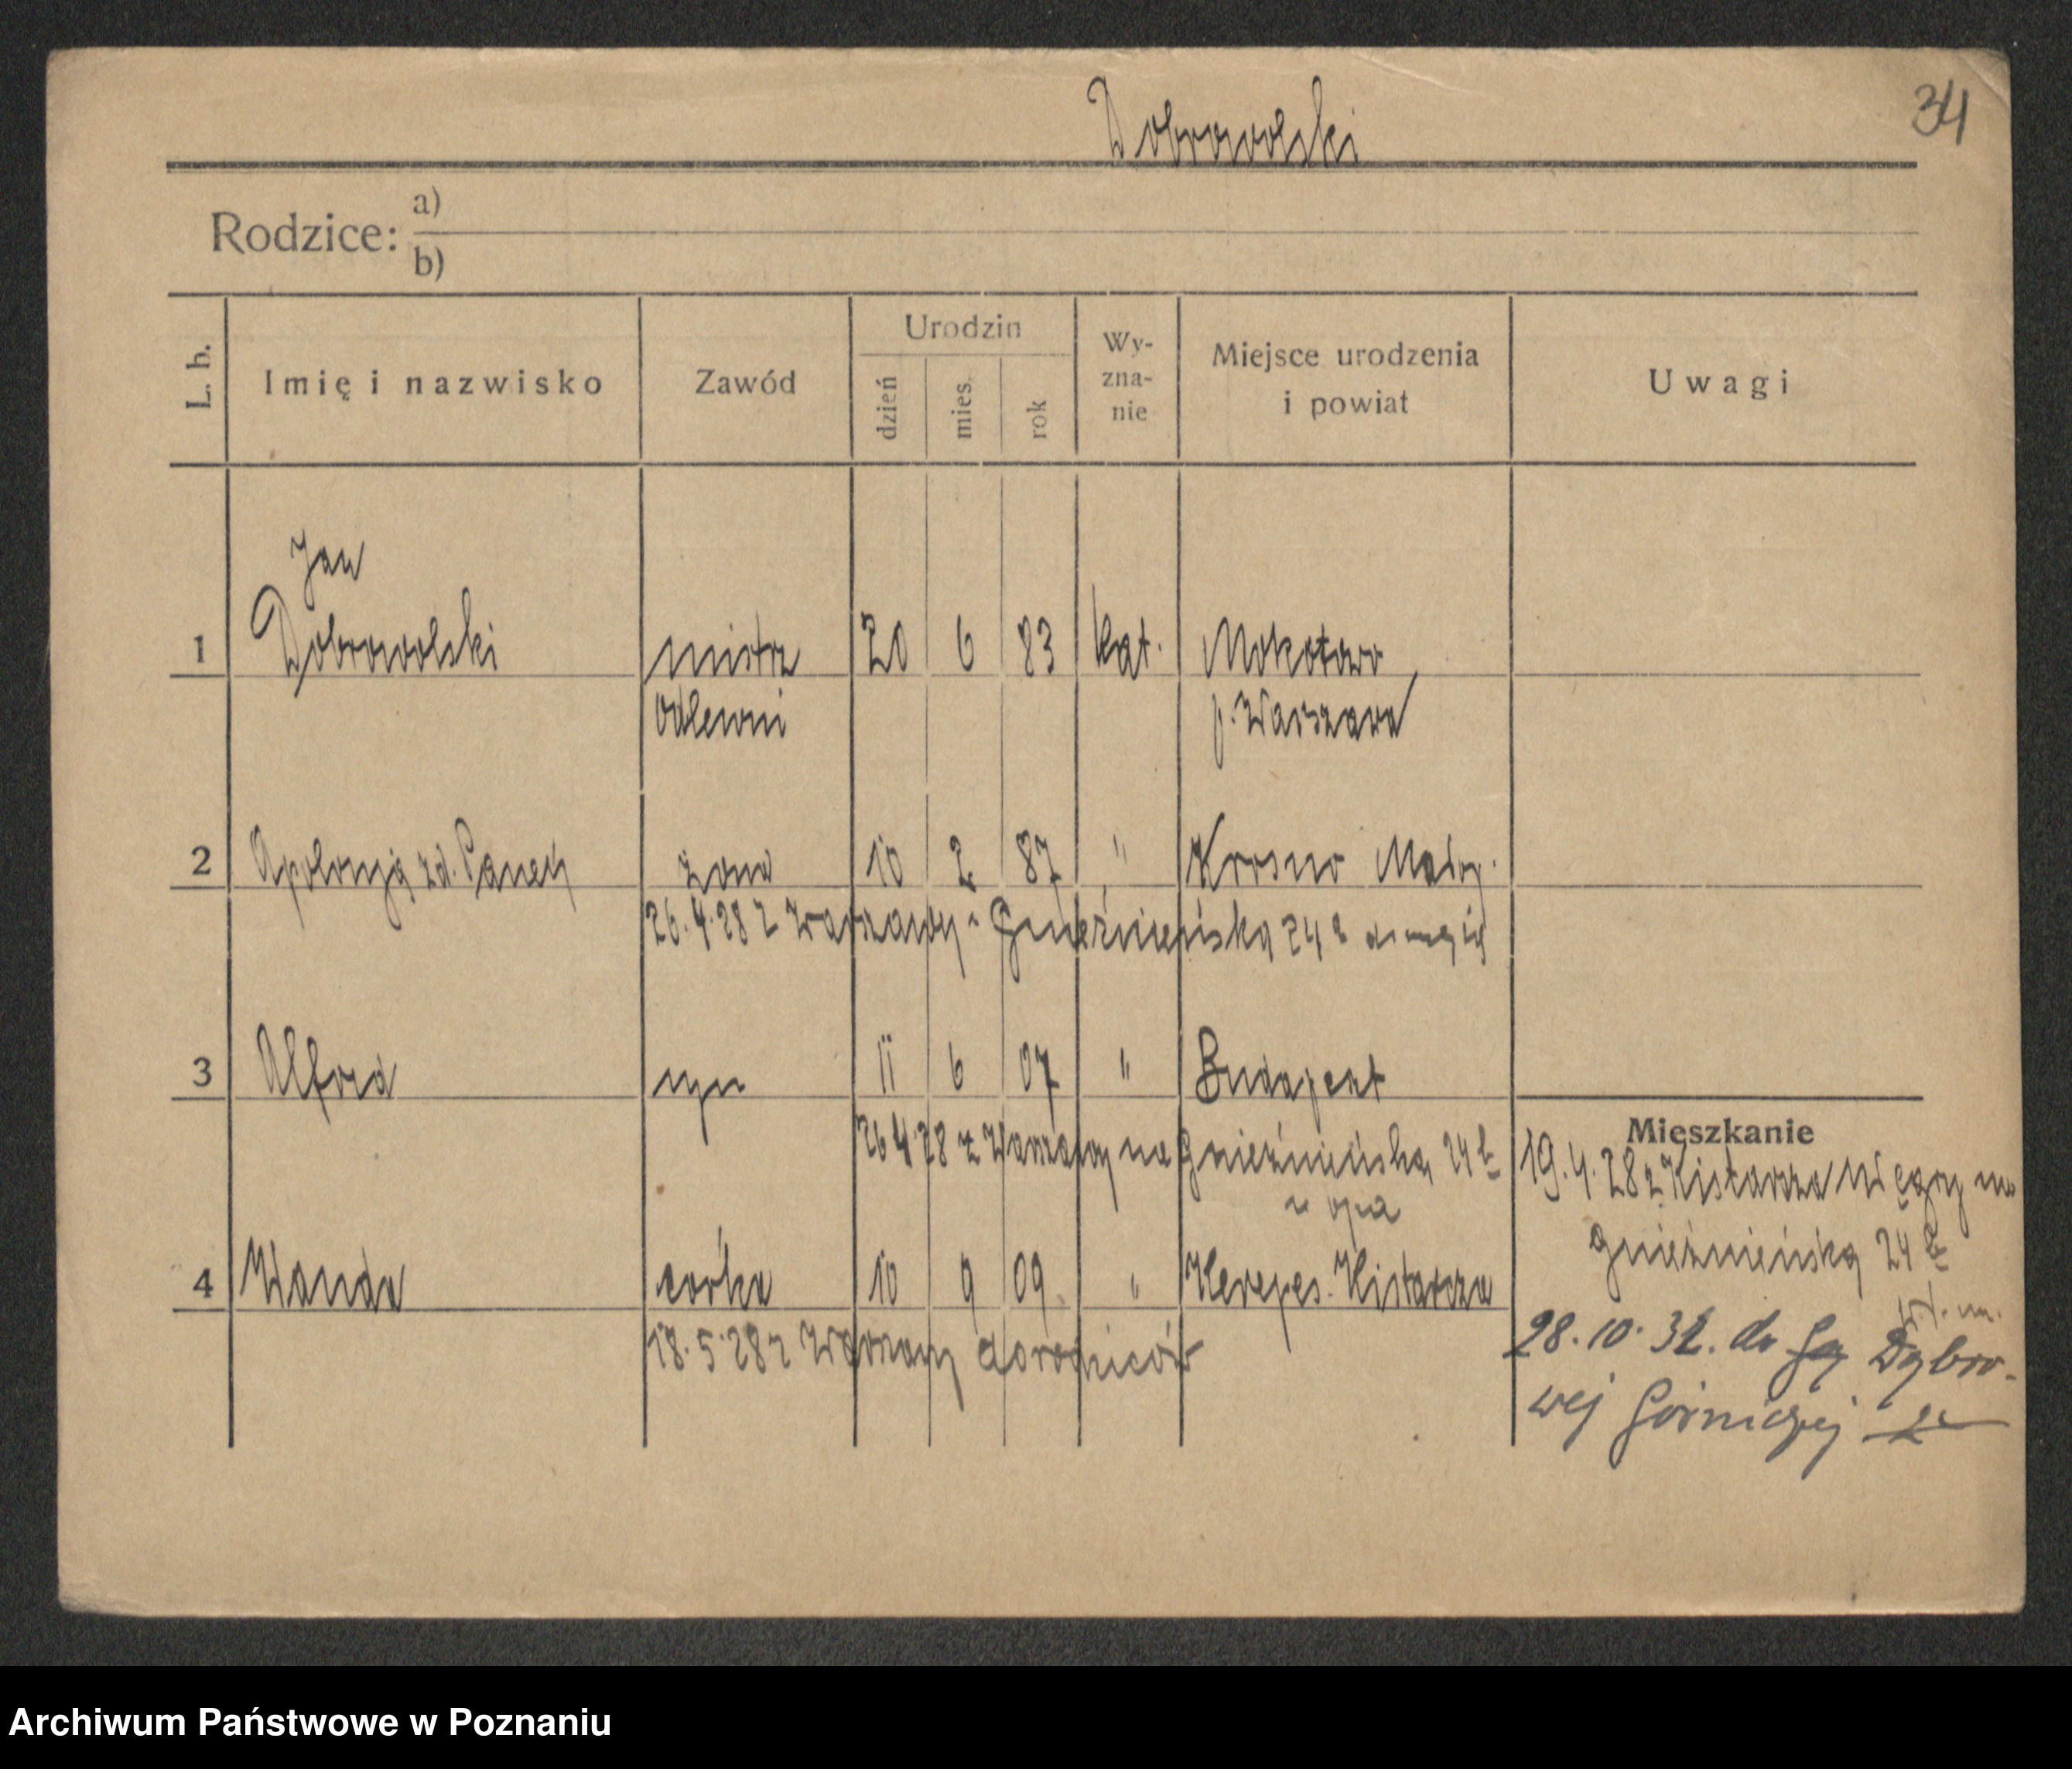 34
Dobrowolski
Rodzice: a)
b)
L. b. Imię i nazwisko Zawód Urodzin dzień mies. rok Wy-zna-nie Miejsce urodzenia i powiat Uwagi
Jan
1 Dobrowolski mistrz 20 6 83 kat. Mokotow
odlewni p. Warszawa
2 Apolonja zd. żona 10 2 87 " Krosno Małop.
26.4.28 z Warszawy Gnieźnieńska 24
3 Alfred syn 11 6 07 " Budapest
Mieszkanie
26 4 28 z Warszawy na Gnieźnieńską 24
19.4.28 z Kistarcza Węgry na
Gnieźnieńską 24
4 Wanda córka 10 9 09 " Kerepes. Kistarcza
18.5.28 z Warszawy do rodziców
28.10.32. do Dąbro-
wej Górniczej
Archiwum Państwowe w Poznaniu